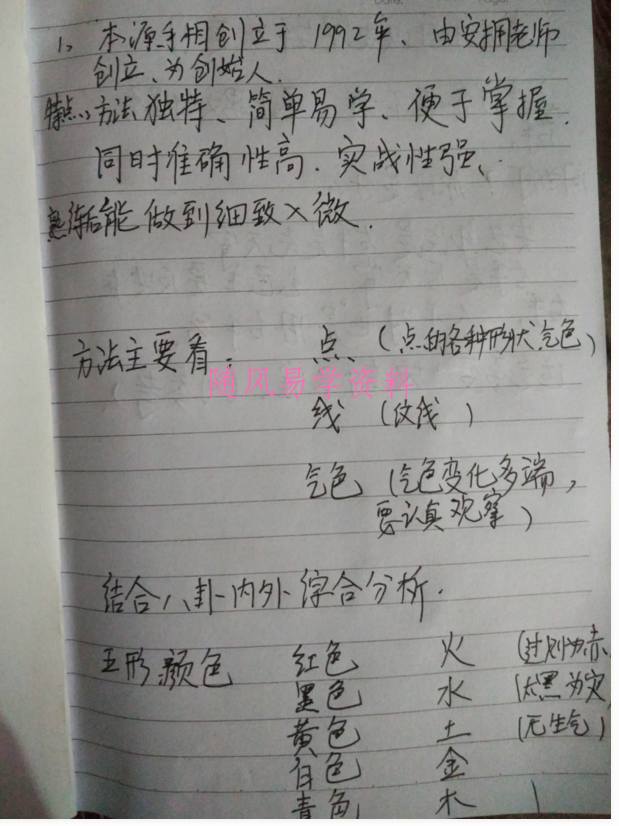 1、本源手相创立于1992年、由安拥老师
创立、为创始人.
特点、方法独特、简单易学、便于掌握.
同时准确性高.实战性强、
熟练后能做到细致入微.
方法主要看: 点 (点的各种形状气色)
随风易学资料
线 (纹线)
气色 (气色变化多端,
要认真观察)
结合八卦内外综合分析.
五形颜色 红色 火 (过则为赤
黑色 水 (太黑为灾
黄色 土 (无生气)
白色 金
青色 木